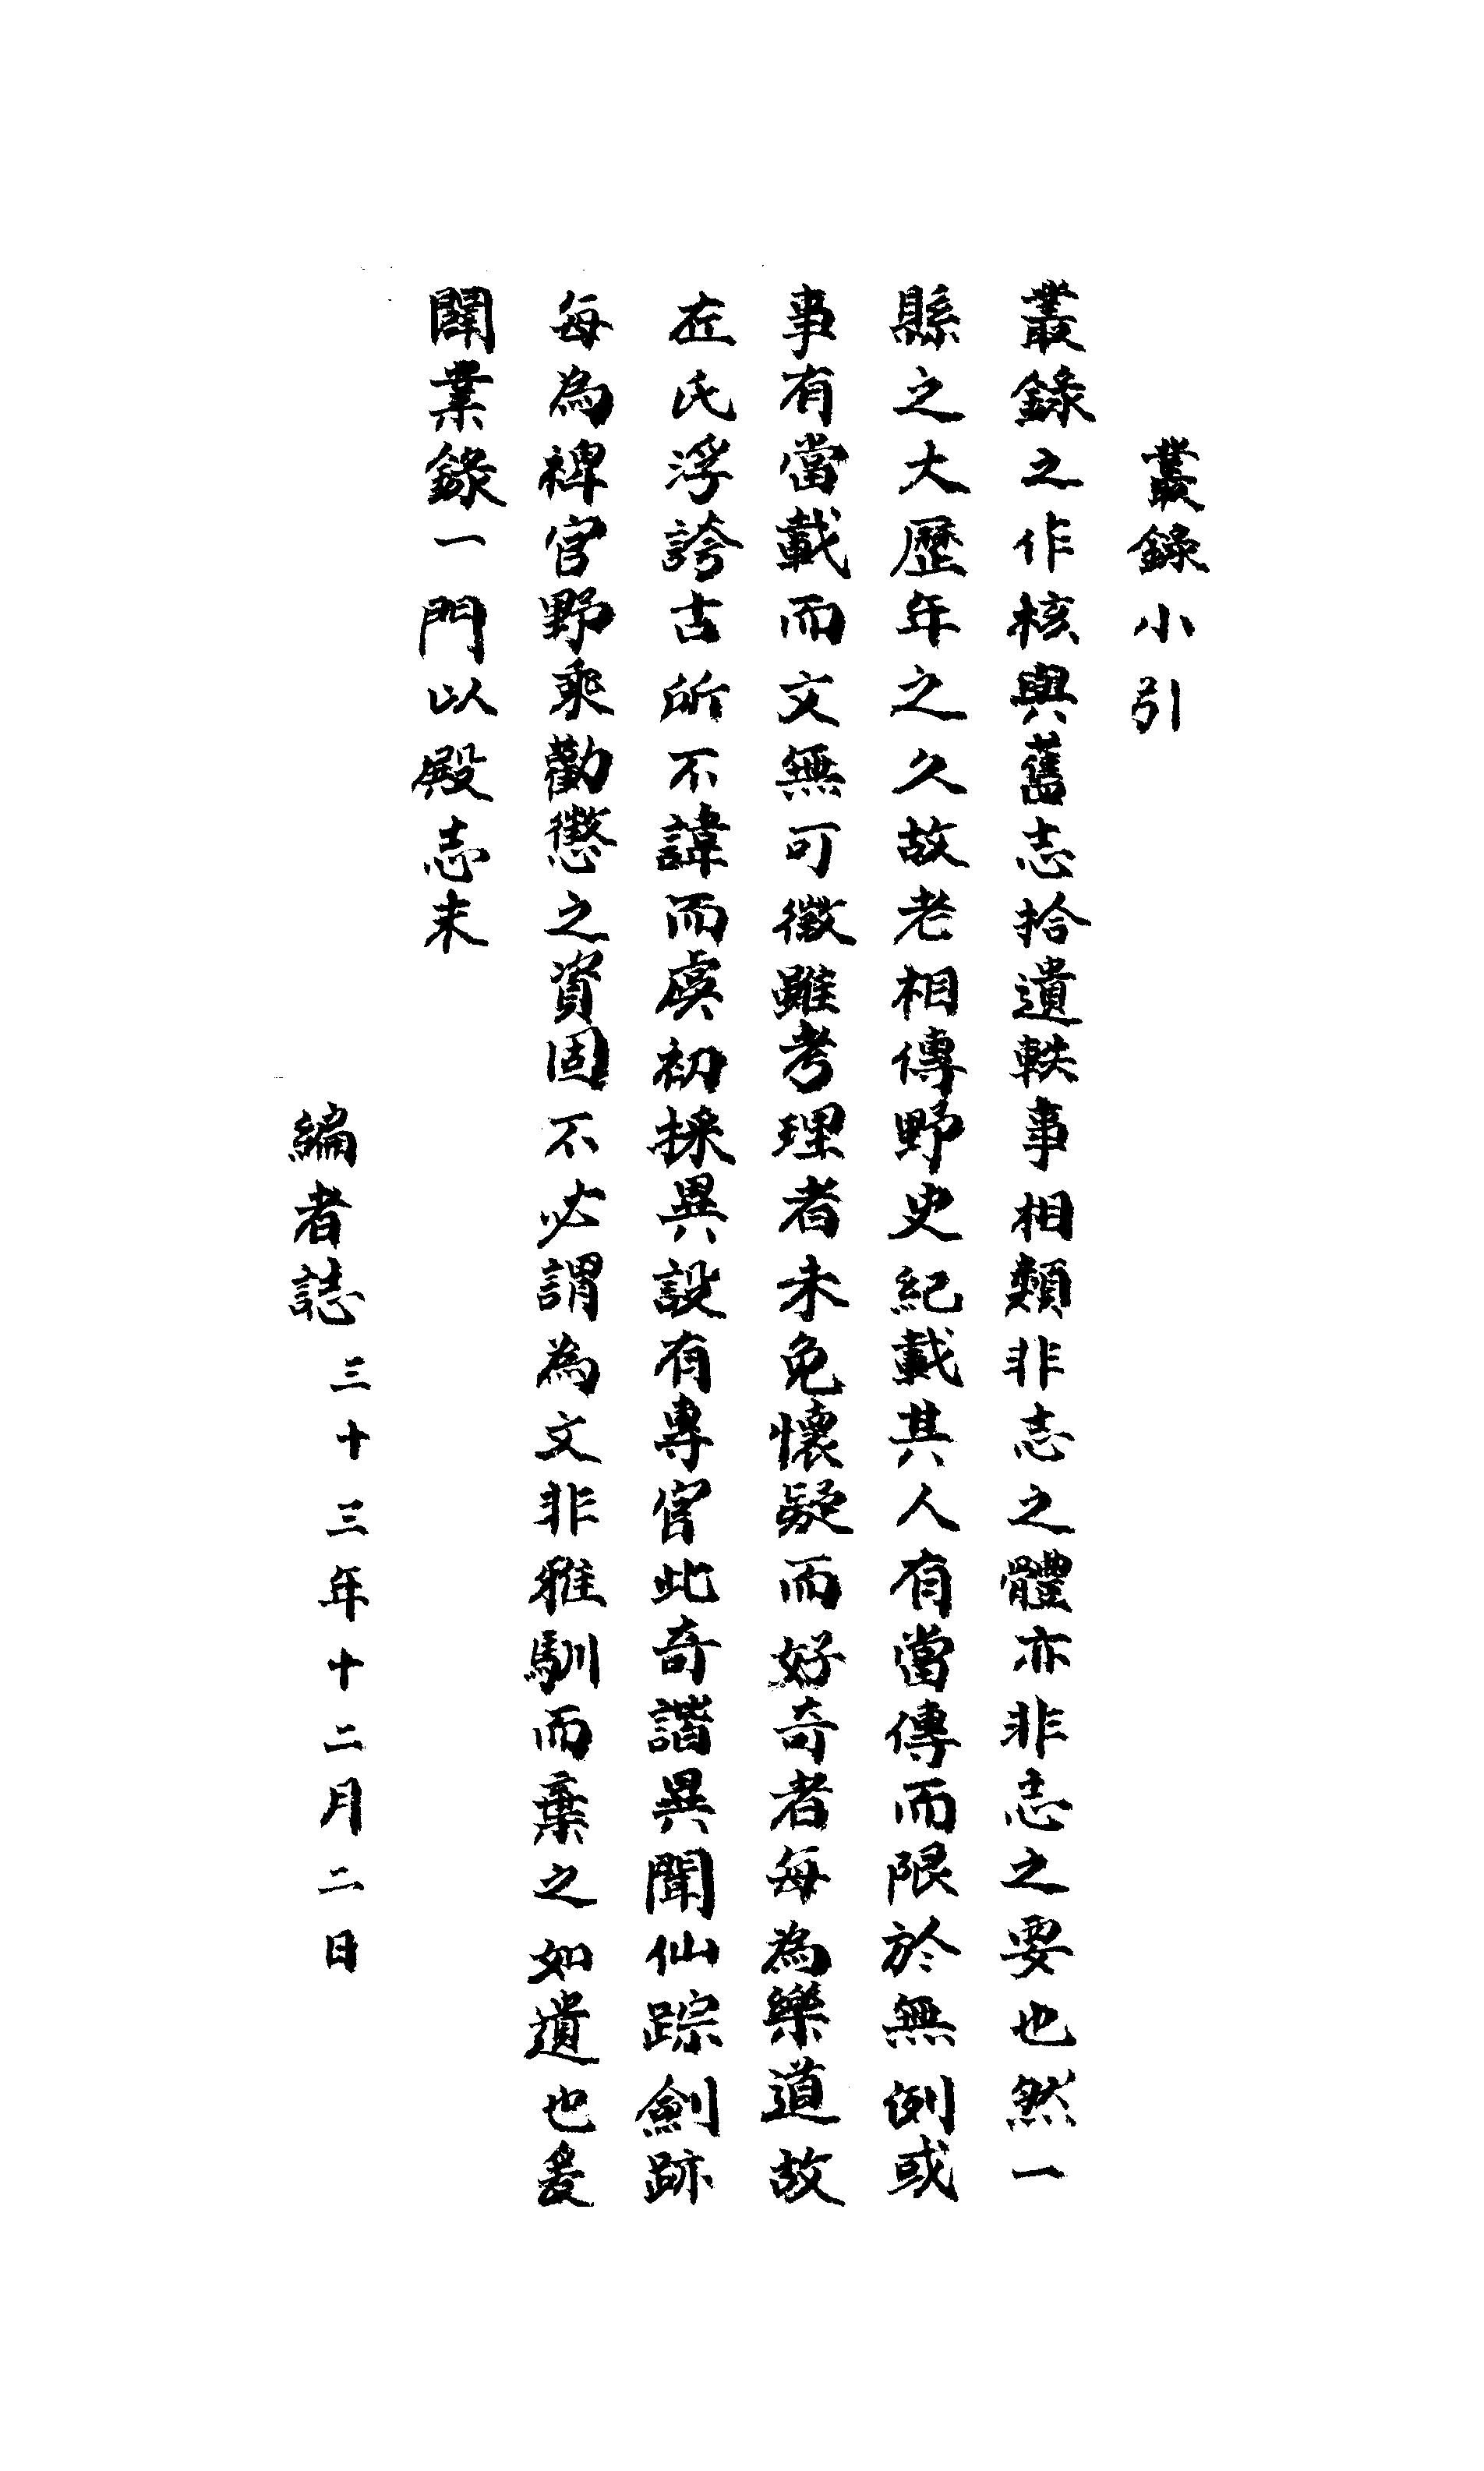 叢錄小引
叢錄之作核與舊志拾遺軼事相類非志之體亦非志之要也然一
縣之大歷年之久故老相傳野史紀載其人有當傳而限於無例或
事有當載而文無可徵雖考理者未免懷疑而好奇者每為樂道故
左氏浮誇古所不諱而虞初採異設有專官此奇諧異聞仙踪劍跡
每為稗官野乘勸懲之資固不必謂為文非雅馴而棄之如遺也爰
闢業錄一門以殿志末
編者誌 三十三年十二月二日